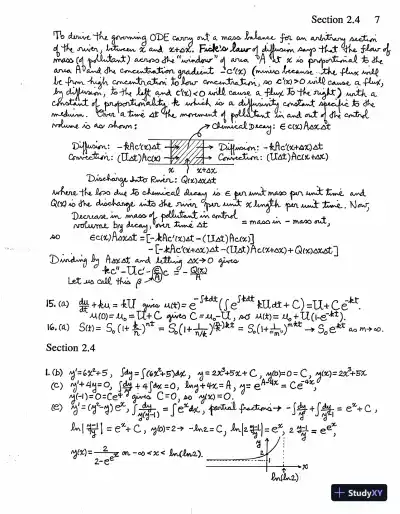 Section 2.4 7
To derive the governing ODE carry out a mass balance for an arbitrary section
of the river, between x and x+Δx. Fick's law of diffusion says that the flow of
mass (of pollutant) across the "window" of area A at x is proportional to the
area A and the concentration gradient -c'(x) (minus because the flux will
be from high concentration to low concentration, so c'(x)>0 will cause a flux,
by diffusion, to the left and c'(x)<0 will cause a flux to the right) with a
constant of proportionality k which is a diffusivity constant specific to the
medium. Over a time Δt the movement of pollutant in and out of the control
volume is as shown:
Chemical decay: εc(x)AΔxΔt
Diffusion: -kAc'(x)Δt
Diffusion: -kAc'(x+Δx)Δt
Convection: (UΔt)Ac(x)
Convection: (UΔt)Ac(x+Δx)
x x+Δx
Discharge into River: Q(x)ΔxΔt
where the loss due to chemical decay is ε per unit mass per unit time and
Q(x) is the discharge into the river per unit x length per unit time. Now,
Decrease in mass of pollutant in control
volume by decay, over time Δt
= mass in - mass out,
so εc(x)AΔxΔt = [-kAc'(x)Δt-(UΔt)Ac(x)]
-[-kAc'(x+Δx)Δt-(UΔt)Ac(x+Δx)+Q(x)ΔxΔt]
Dividing by AΔxΔt and letting Δx→0 gives
Let us call this β
15. (a) du/dt + ku = kU gives u(t) = e^{-∫kdt}(∫e^{∫kdt} kU dt + C) = U + Ce^{-kt}.
u(0)=u₀=U+C gives C=u₀-U, so u(t)=u₀+U(1-e^{-kt}).
16. (a) S(t) = S₀(1+k/n)^{nt} = S₀(1+1/(n/k))^{(n/k)kt} = S₀(1+1/m)^{mkt} → S₀e^{kt} as m→∞.
Section 2.4
1. (b) y'=6x²+5, ∫dy=∫(6x²+5)dx, y=2x³+5x+C, y(0)=0=C, y(x)=2x³+5x
(c) y'+4y=0, ∫dy/y+4∫dx=0, ln y+4x=A, y=e^{A-4x}=Ce^{-4x},
y(-1)=0=Ce⁴ gives C=0, so y(x)=0.
(e) y'=(y²-y)e^x, ∫dy/(y²-y)=∫e^x dx, partial fractions → -∫dy/y+∫dy/(y-1)=e^x+C,
ln|(y-1)/y|=e^x+C, y(0)=2→ -ln2=C, ln|2(y-1)/y|=e^x, 2(y-1)/y=e^{e^x},
y(x)=2/(2-e^{e^x}) on -∞<x<ln(ln2).
y
2
1
x
ln(ln2)
+ StudyXY